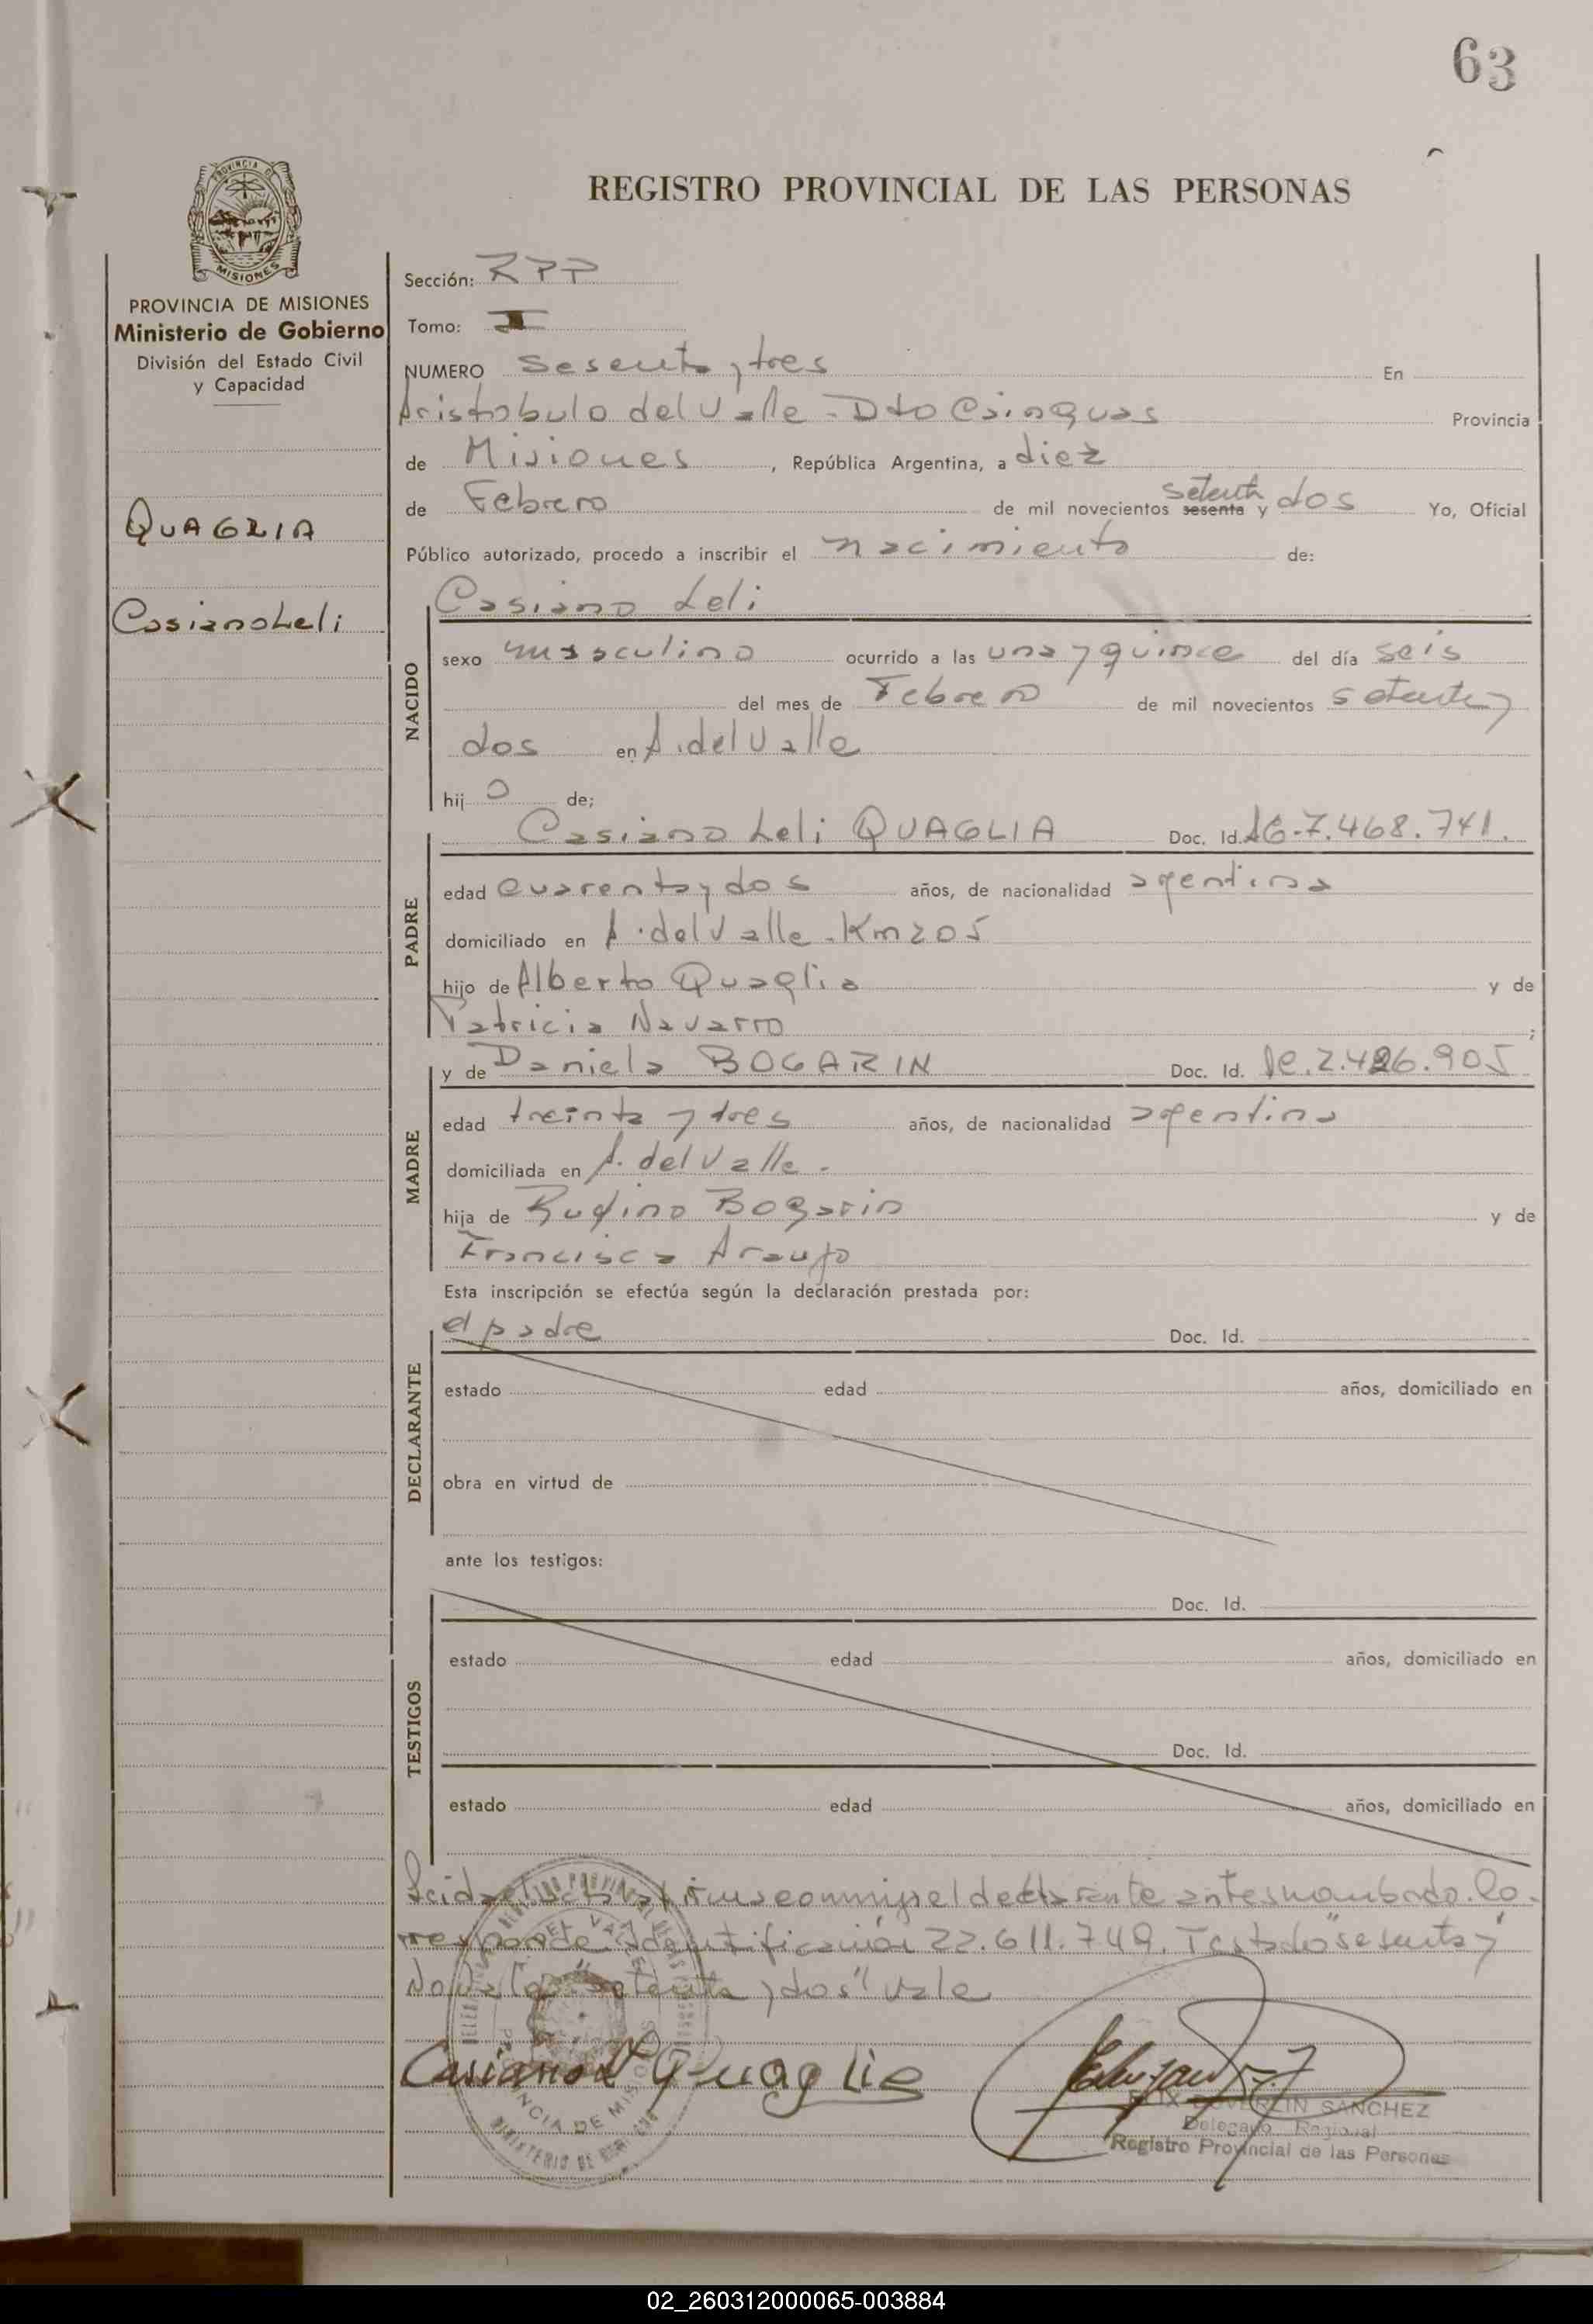 63
REGISTRO PROVINCIAL DE LAS PERSONAS
PROVINCIA DE
MISIONES
PROVINCIA DE MISIONES
Ministerio de Gobierno
División del Estado Civil
y Capacidad
QUAGLIA
Casiano Leli
Sección: RPP
Tomo: I
NUMERO Sesenta y tres En
Aristobulo del Valle - Dto Cainguas Provincia
de Misiones, República Argentina, a diez
de Febrero de mil novecientos sesenta setenta y dos Yo, Oficial
Público autorizado, procedo a inscribir el nacimiento de:
NACIDO
Casiano Leli
sexo masculino ocurrido a las una y quince del día seis
del mes de Febrero de mil novecientos setenta y
dos en A. del Valle
hijo de;
PADRE
Casiano Leli QUAGLIA Doc. Id. 7.468.741.
edad cuarenta y dos años, de nacionalidad agentina
domiciliado en A. del Valle - Km 205
hijo de Alberto Quaglia y de
Patricia Navarro ;
MADRE
y de Daniela BOGARIN Doc. Id. 2.426.905
edad treinta y tres años, de nacionalidad agentina
domiciliada en A. del Valle -
hija de Rufino Bogarin y de
Francisca Araujo
Esta inscripción se efectúa según la declaración prestada por:
DECLARANTE
el padre Doc. Id.
estado edad años, domiciliado en
obra en virtud de
ante los testigos:
TESTIGOS
Doc. Id.
estado edad años, domiciliado en
Doc. Id.
estado edad años, domiciliado en
Leida el acta la firma conmigo el declarante antes nombrado. Co-
rresponde identificación 22.611.749. Testado "sesenta y"
"setenta y dos" vale
Casiano L Quaglia
SANCHEZ
Delegado Regional
Registro Provincial de las Personas
02_260312000065-003884